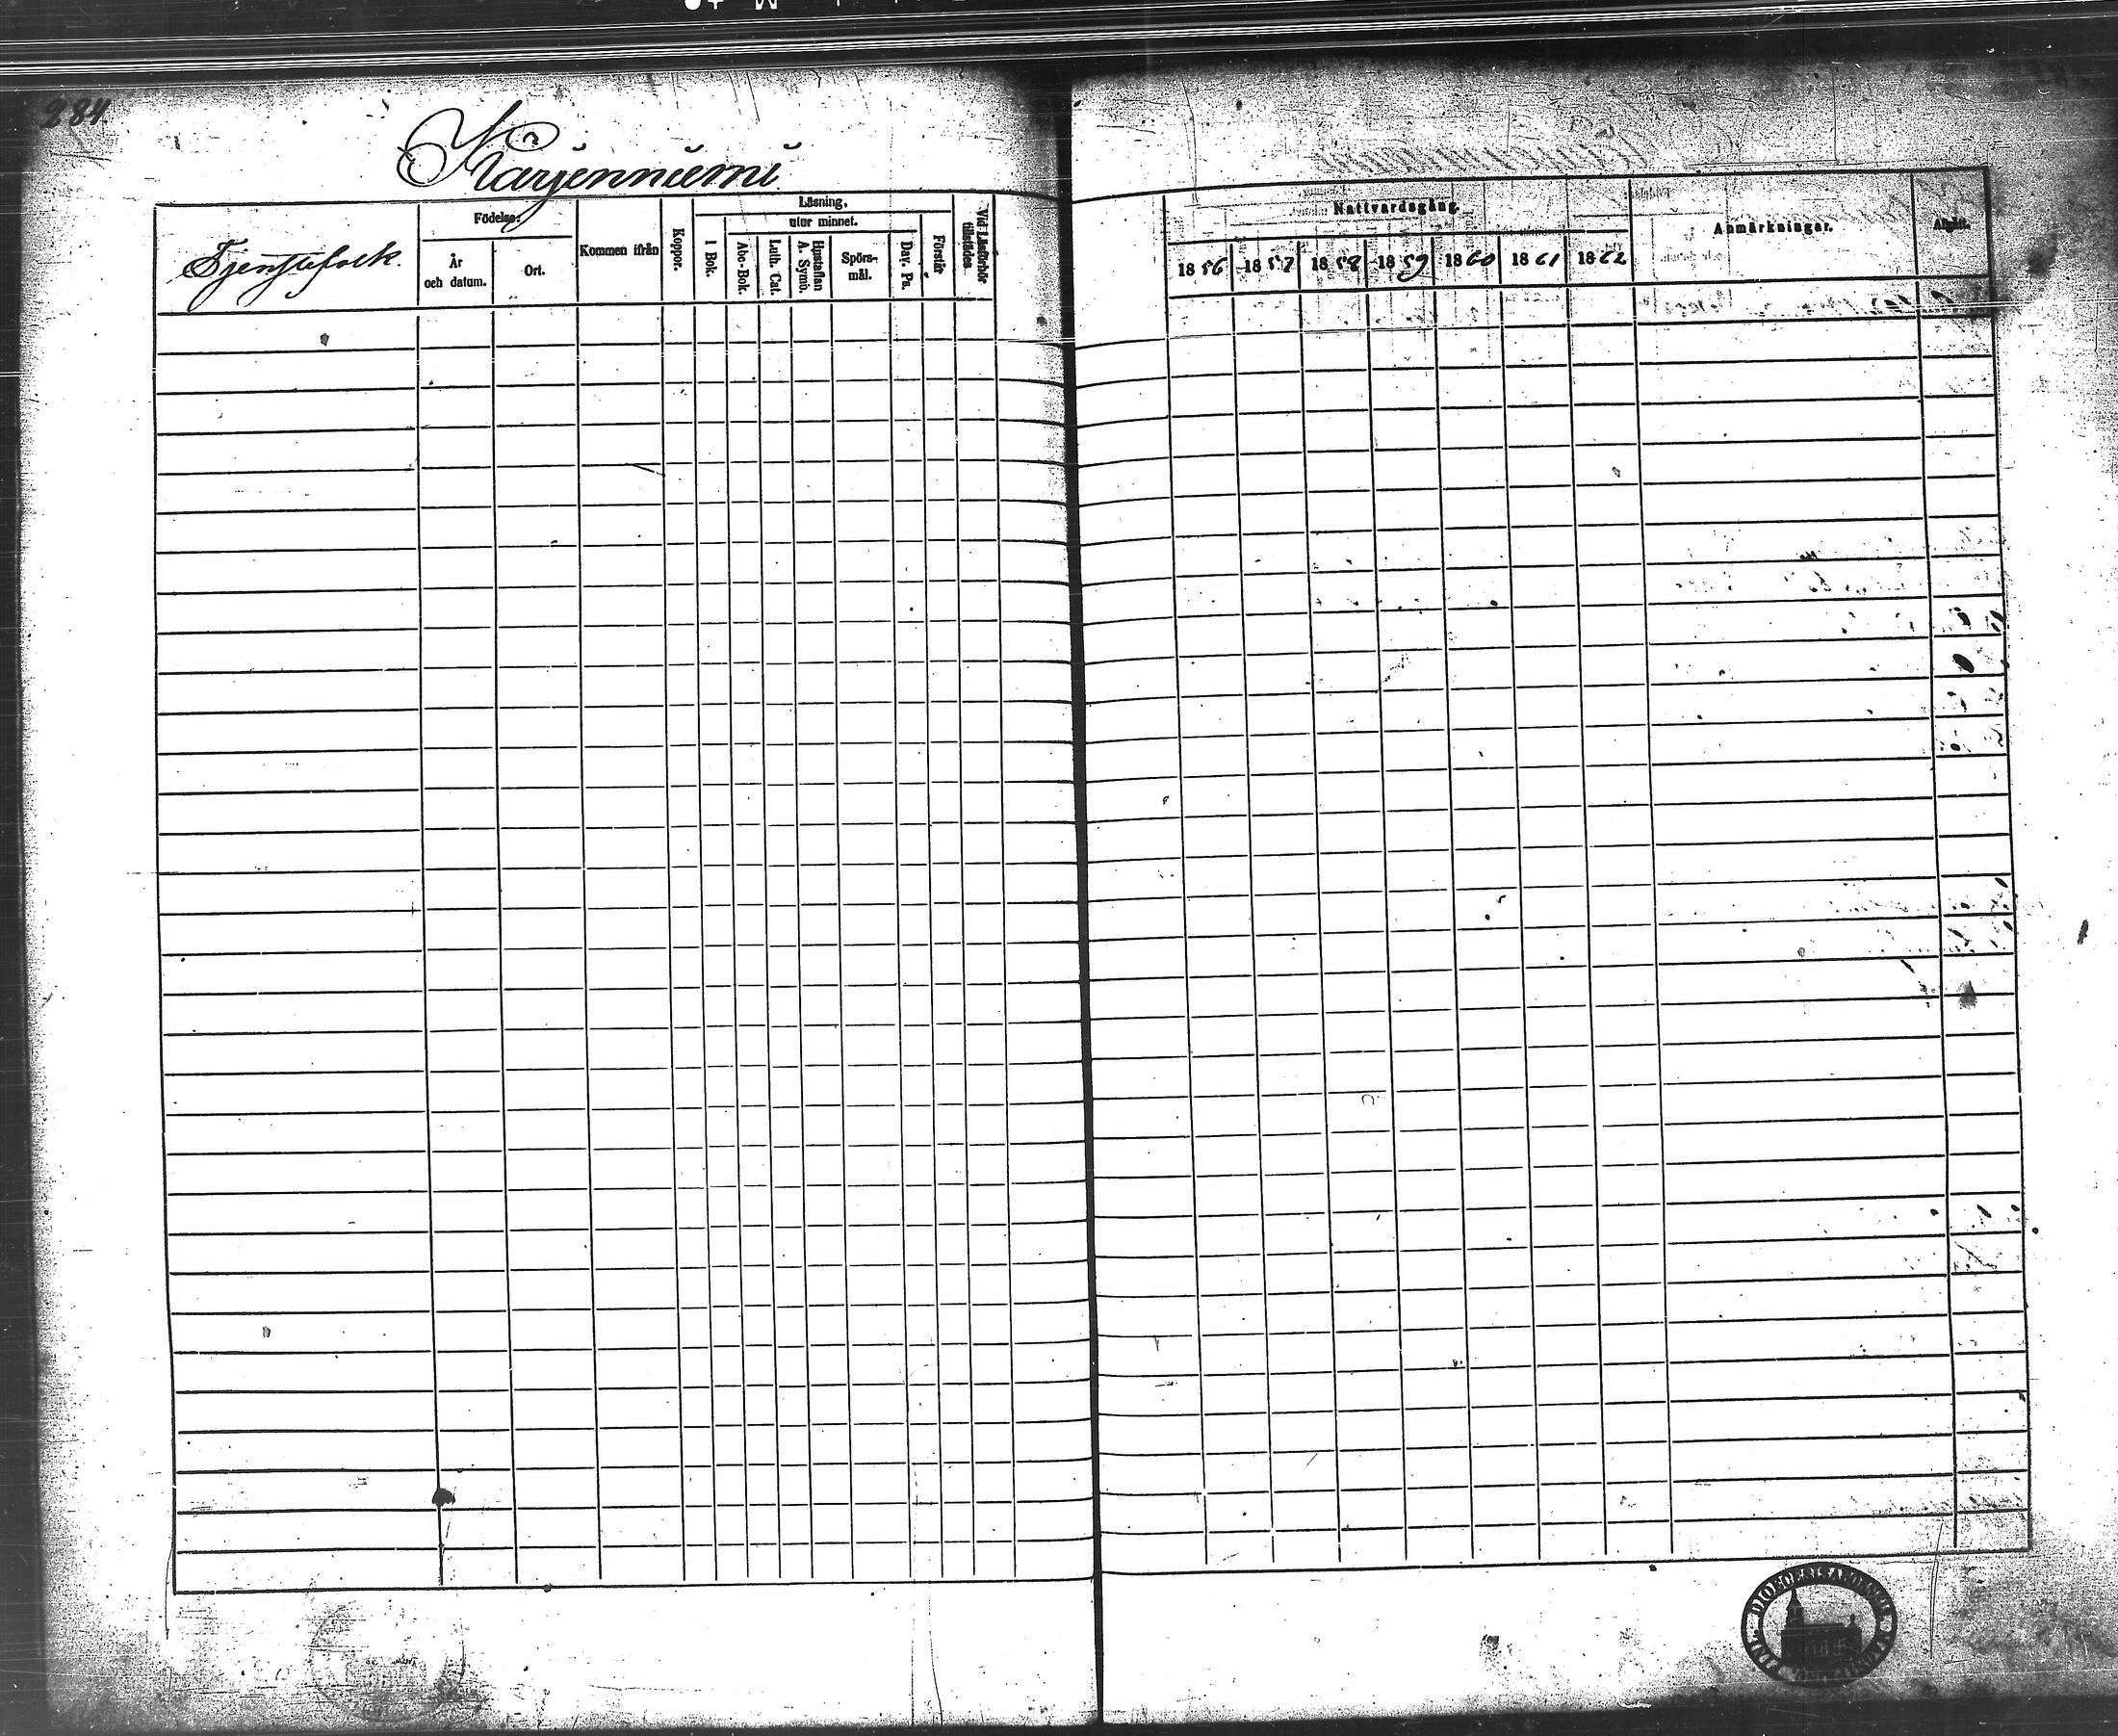 284.
Karjenniemi
Tjenstefolk.
Födelse-
År
och datum.
Ort.
Kommen ifrån
Koppor.
Läsning.
utur minnet.
I Bok.
Abc-Bok.
Luth. Cat.
Hustaflan
A. Symb.
Spörs-
mål.
Dav. Ps.
Förstår
Vid Läsförhör
tillstädes.
Nattvardsgång.
1856 1857 1858 1859 1860 1861 1862
Anmärkningar.
Afgått.